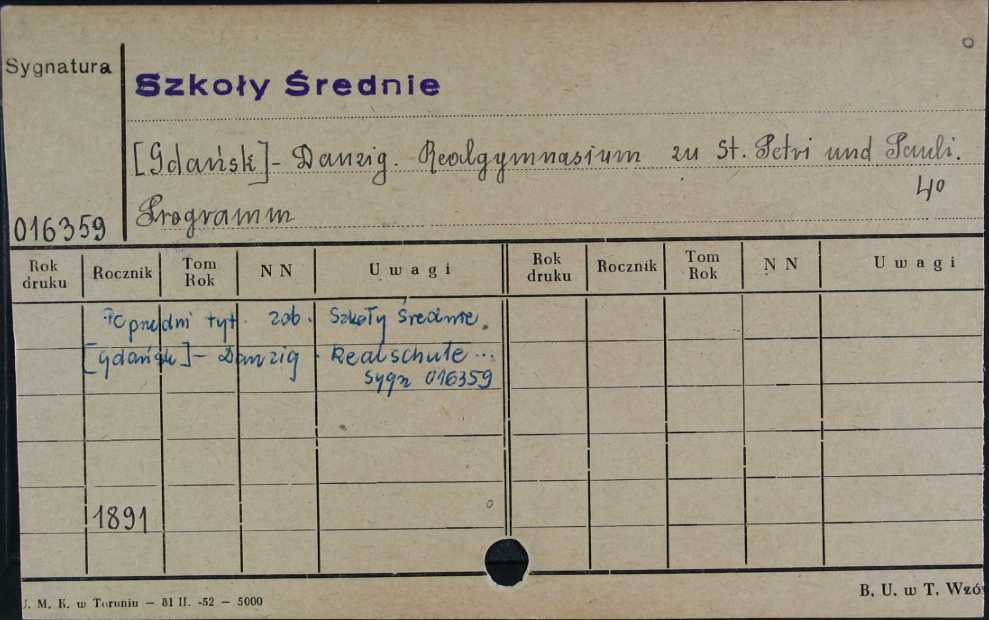 Sygnatura
Szkoły Średnie
[Gdańsk] - Danzig. Realgymnasium zu St. Petri und Pauli.
4o
Programm
016359
Rok druku Rocznik Tom Rok N N Uwagi Rok druku Rocznik Tom Rok N N Uwagi
Poprzedni tyt. zob. Szkoły Średnie.
[Gdańsk] - Danzig. Realschule ...
Sygn 016359
1891
U. M. K. w Toruniu — 81 II. -52 — 5000
B. U. w T. Wzó